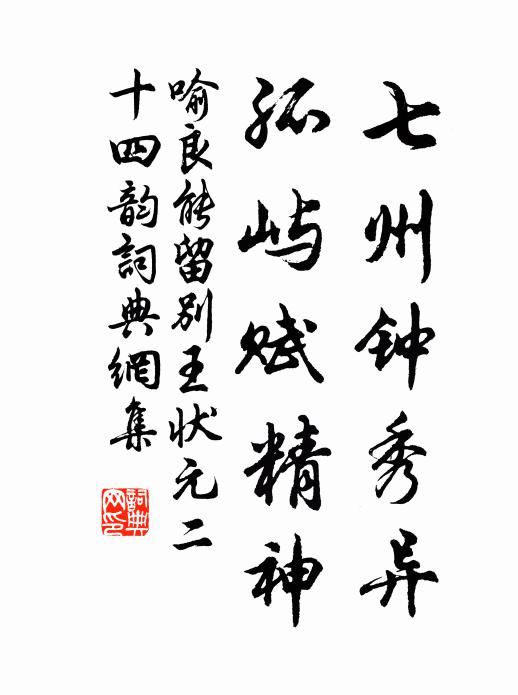 七州钟秀异
孤屿赋精神
喻良能留别王状元二
十四韵詞典網集
詞典
网印